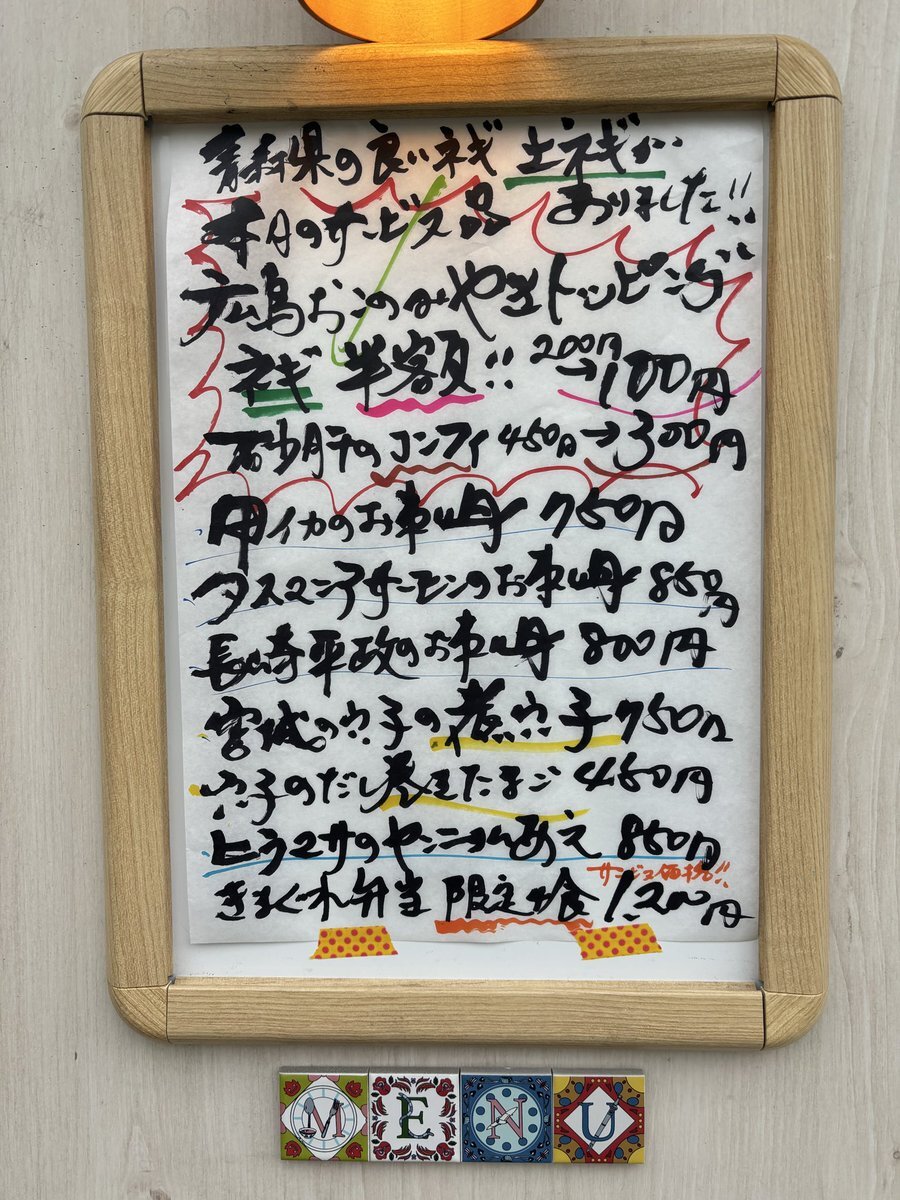 青森県の良いネギ 土ネギが
本日のサービス品 おりました!!
広島おこのみやきトッピング
ネギ 半額!! 200円→100円
砂肝のコンフィ 450円→300円
甲イカのお刺身 750円
タスマニアサーモンのお刺身 850円
長崎平政のお刺身 800円
宮城の穴子の煮穴子 750円
穴子のだし巻きたまご 450円
ヒラマサのヤンニョムあえ 850円
サービス価格!!
きまぐれ弁当 限定 食 1,200円
MENU